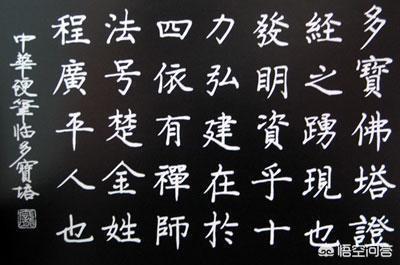 多寶佛塔證
經之踴現也
發明資乎十
力弘建在於
四依有禪師
法号楚金姓
程廣平人也
中華硬筆临多寶塔
悟空问答